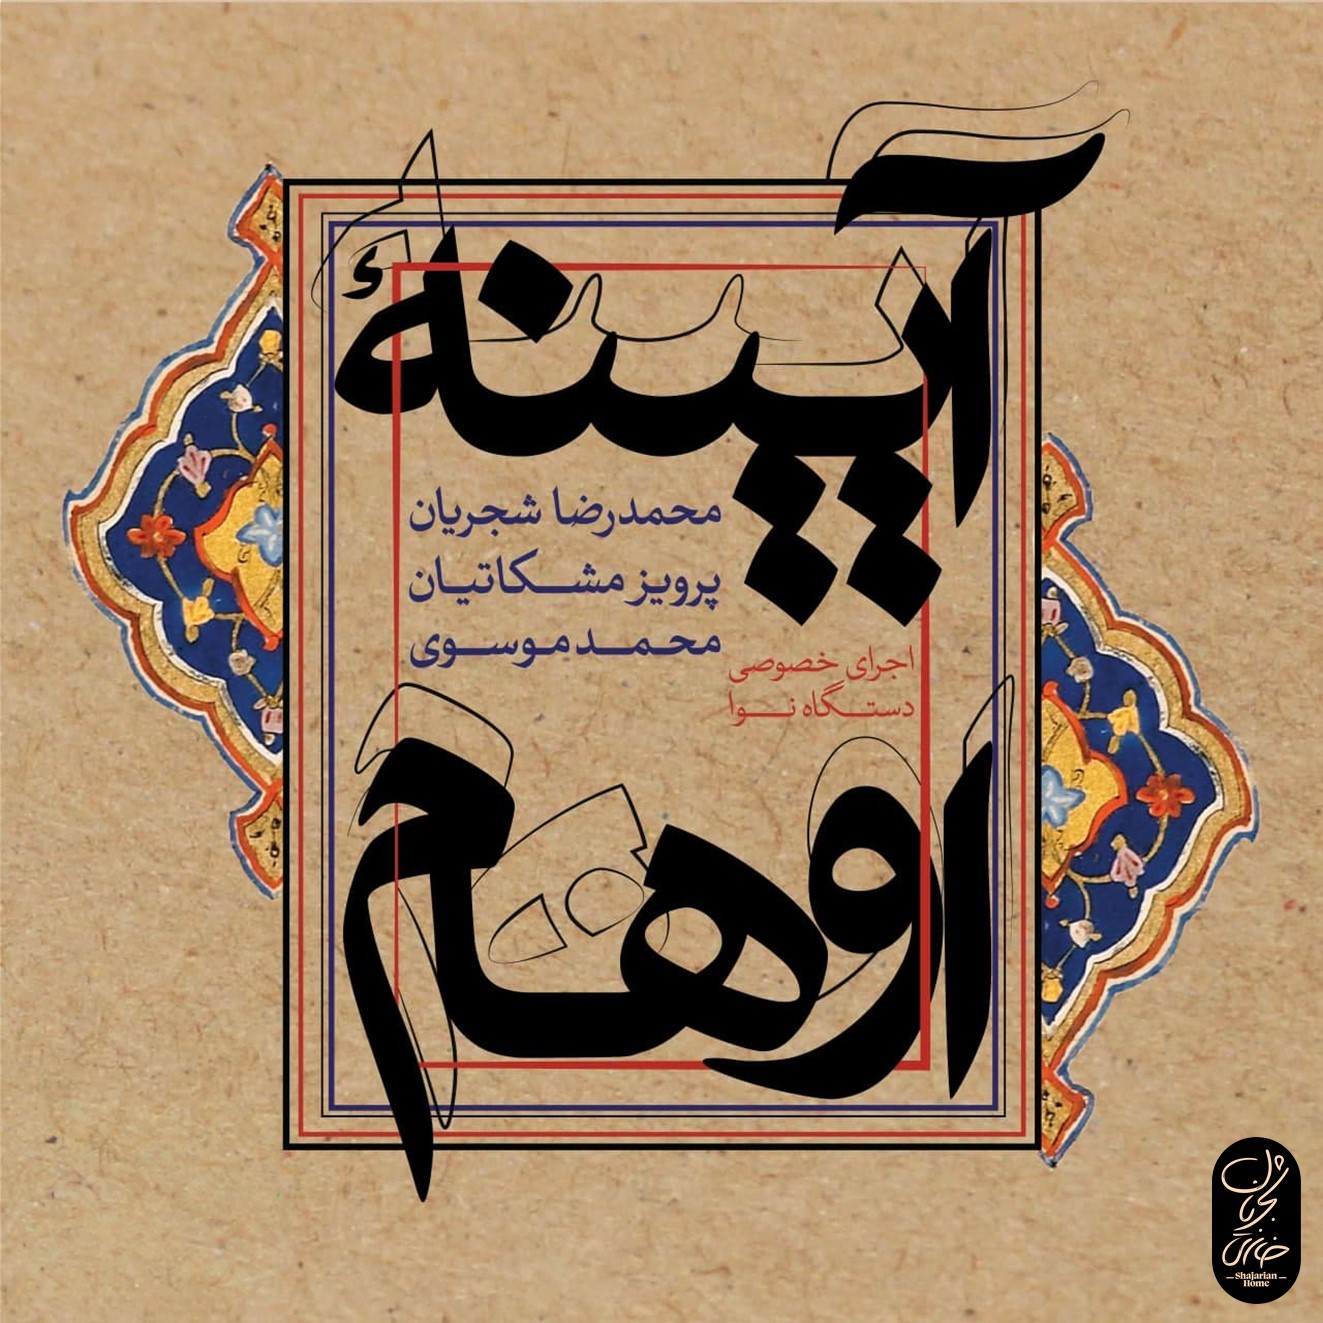 آیینهٔ
محمدرضا شجریان
پرویز مشکاتیان
محمد موسوی
اجرای خصوصی
دستگاه نوا
اوهام
خانه‌ی شجریان
Shajarian
Home